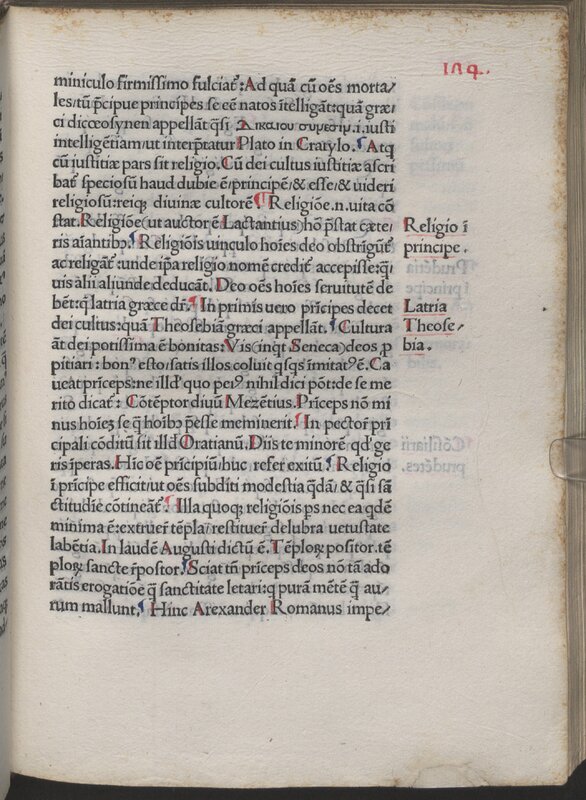 184.
miniculo firmissimo fulciat᷑: Ad quã cũ oẽs morta/
les/tũ p̃cipue principes se eẽ natos ĩtelligãt: quã græ/
ci dicæosynen appellãt q̃si δικαιου συνεσιμ .i. iusti
intelligẽtiam/ut interp̃tatur Plato in Cratylo. Atq
cũ iustitiæ pars sit religio. Cũ dei cultus iustitiæ ascri
bat᷑ speciosũ haud dubie ẽ/principẽ/& esse/& uideri
religiosũ: reiq; diuinæ cultorẽ. Religiõe .n. uita cõ
stat. Religiõe (ut auctor ẽ Lactantius) hõ p̃stat cæte/
ris aĩantibꝰ. Religiõis uinculo hoĩes deo obstrigũt᷑
ac religãt᷑: unde ip̃a religio nomẽ credit᷑ accepisse: q̃/
uis alii aliunde deducãt. Deo oẽs hoĩes seruitutẽ de
bẽt: q̃ latria græce dr̃. In primis uero p̃ncipes decet
dei cultus: quã Theosebiãm græci appellãt. Cultura
aũt dei potissima ẽ bonitas: Vis (inqt Seneca) deos ꝓ
pitiari: bonꝰ esto/satis illos coluit qsqs imitatꝰ ẽ. Ca
ueat p̃nceps: ne illd' quo peiꝰ nihil dici põt: de se me
rito dicat᷑: Cõtẽptor diuũ Mezẽtius. P̃nceps nõ mi
nus hoĩeꝫ se q̃ hoĩbꝰ p̃esse meminerit. In pector̃ pri
cipali cõditũ sit illd Oratianũ. Diis te minorẽ qd' ge
ris iperas. Hic oẽ p̃ncipiũ/huc refer exitũ. Religio
ĩ p̃ncipe efficit/ut oẽs subditi modestia q̃dã/& q̃si sã
ctitudĩe cõtineãt᷑. Illa quoq; religiõis ps nec ea qdẽ
minima ẽ: extruer̃ tẽpla/restituer̃ delubra uetustate
labẽtia. In laudẽ Augusti dictũ ẽ. Tẽploꝝ positor. tẽ
ploꝝ sancte r̃postor. Sciat tñ p̃nceps deos nõ tã ado
rãtis erogatiõe q̃ sanctitate letari: q purã mẽtẽ q̃ au/
rum mallunt. Hinc Arexander Romanus impe/
Religio ĩ
principe.
Latria
Theose/
bia.